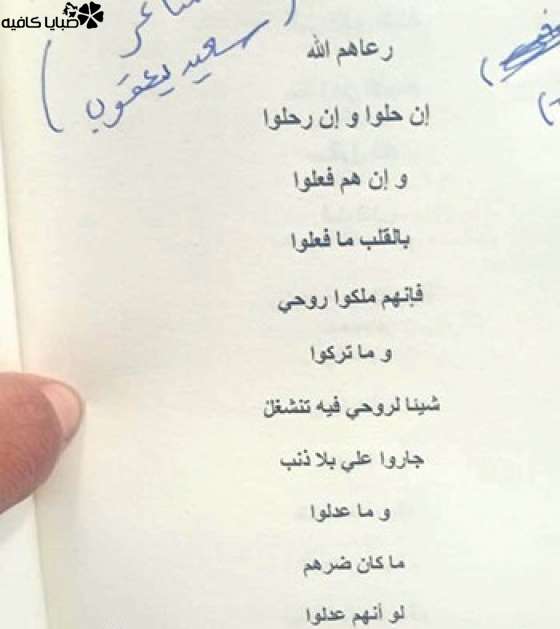 صبايا كافيه
شاعر
سعيد يعقوب
رعاهم الله
إن حلوا و إن رحلوا
و إن هم فعلوا
بالقلب ما فعلوا
فإنهم ملكوا روحي
و ما تركوا
شيئا لروحي فيه تنشغل
جاروا علي بلا ذنب
و ما عدلوا
ما كان ضرهم
لو أنهم عدلوا